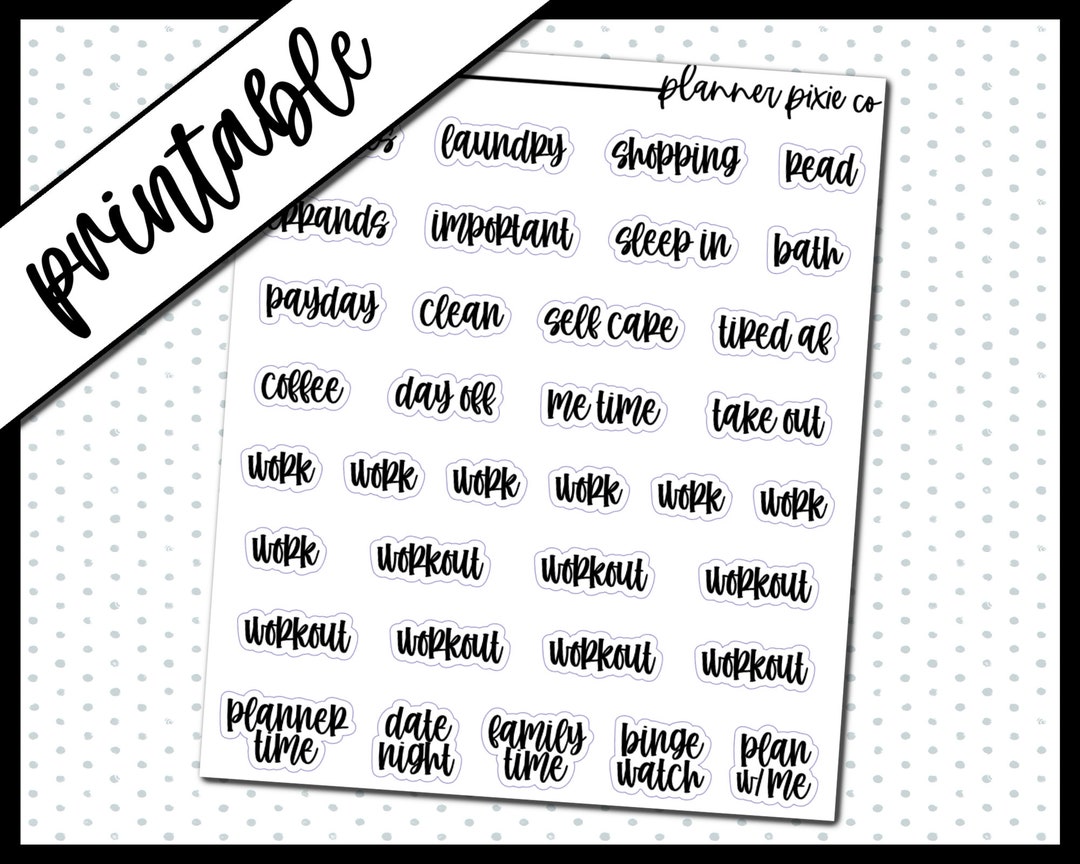 printable
planner pixie co
laundry shopping read
errands important sleep in bath
payday clean self care tired af
coffee day off me time take out
work work work work work work
work workout workout workout
workout workout workout workout
planner time date night family time binge watch plan w/me